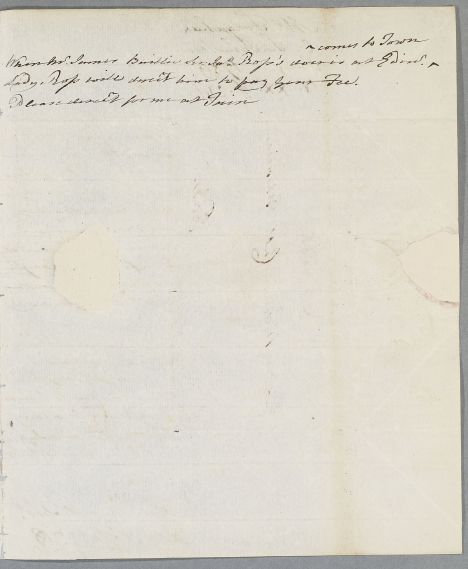 ^ comes to Town
When Mr. James Baillie Sr. Ja: Ross's doer is at Edinr. ^
Lady Ross will direct him to pay your Fee.
Please direct for me at Tain